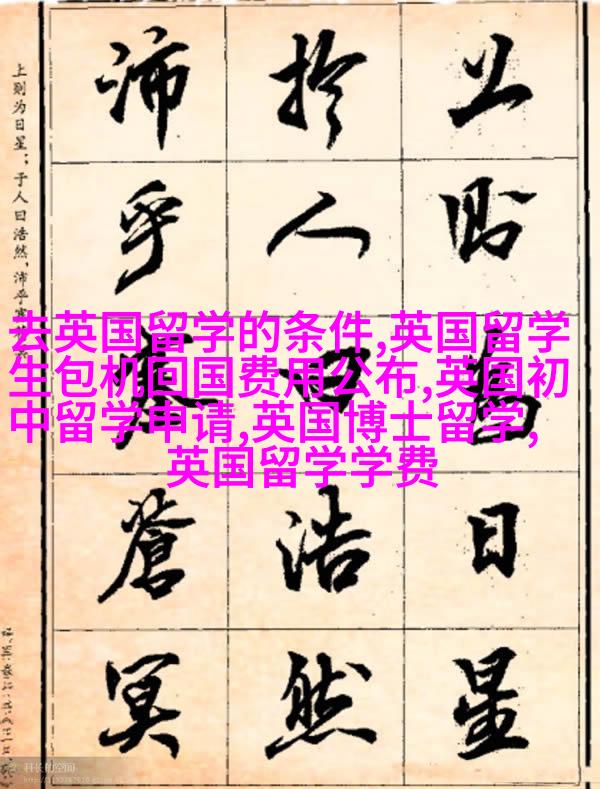 上則為日星
於人曰浩然
沛乎塞蒼冥
上则为日星；于人曰浩然，沛乎
去英国留学的条件,英国留学
生包机回国费用公布,英国初
中留学申请,英国博士留学,
英国留学学费
科长的空间